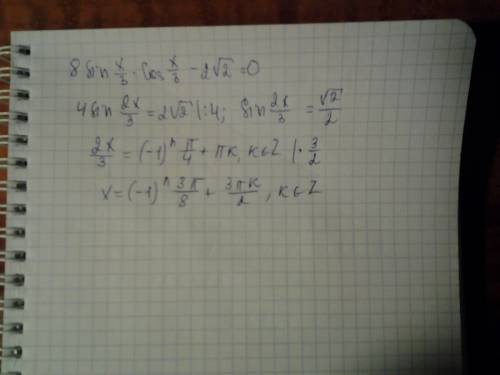 8 sin x/3 · cos x/3 − 2√2 = 0
4 sin 2x/3 = 2√2 |:4; sin 2x/3 = √2/2
2x/3 = (−1)^n π/4 + πk, k∈Z | · 3/2
x = (−1)^n 3π/8 + 3πk/2, k∈Z